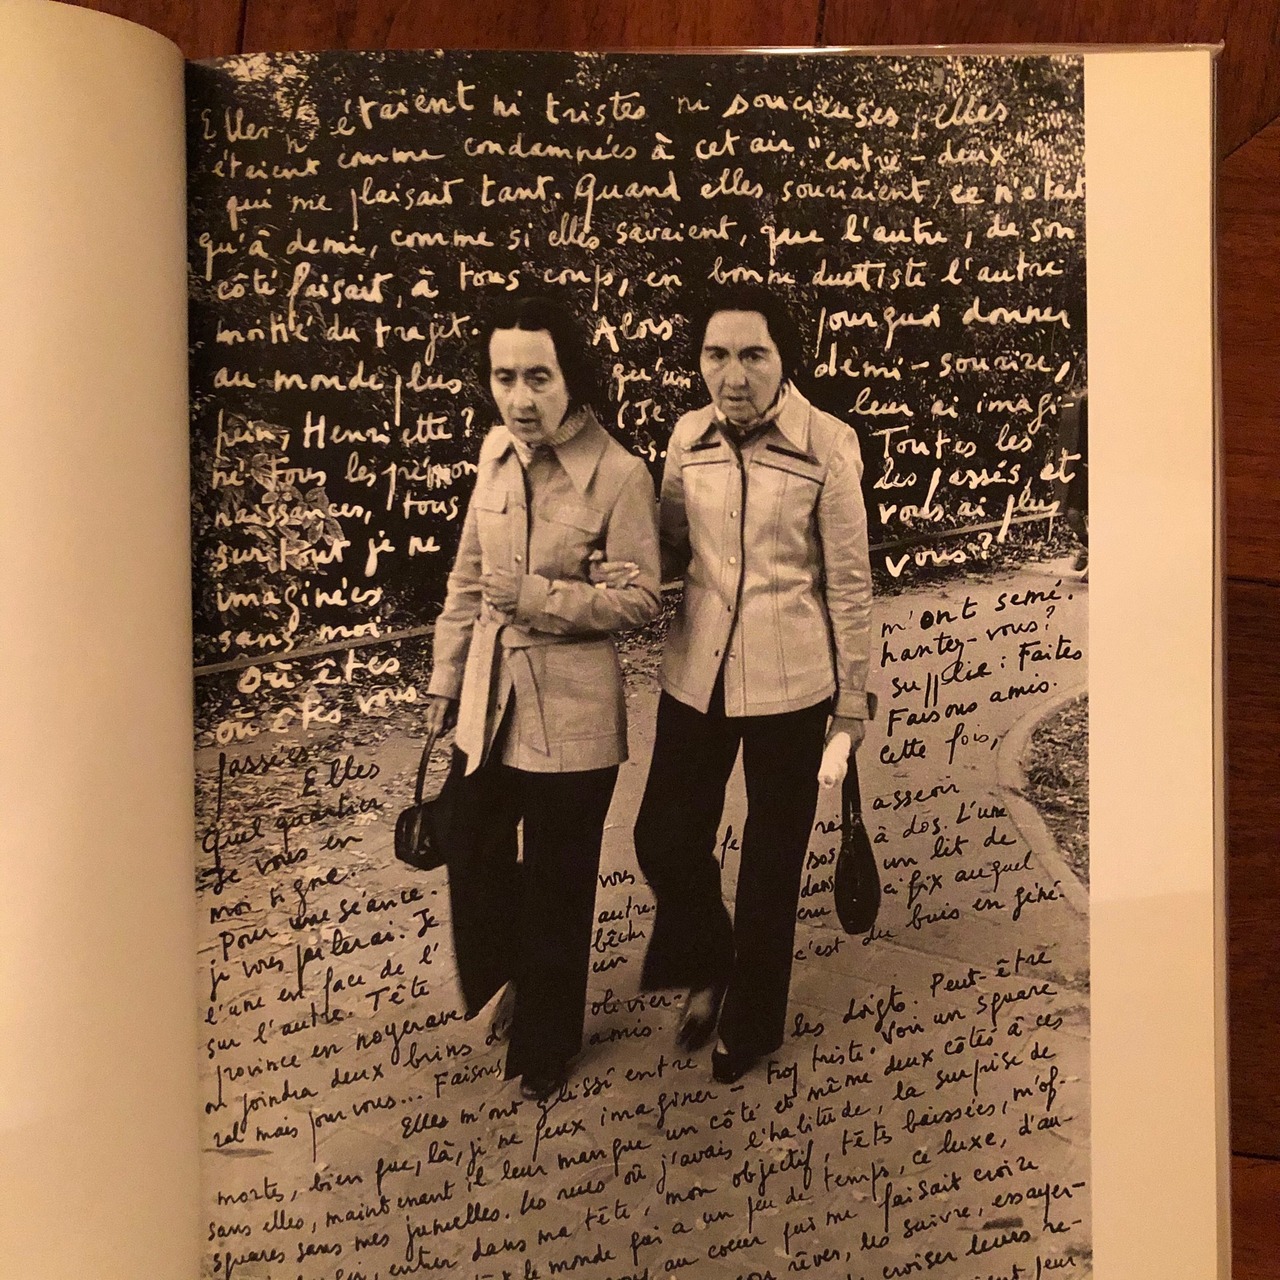 Elles n'étaient ni tristes ni soucieuses, elles
étaient comme condamnées à cet air "entre-deux
qui me plaisait tant. Quand elles souriaient, ce n'était
qu'à demi, comme si elles savaient, que l'autre, de son
côté faisait, à tous coups, en bonne duettiste l'autre
moitié du trajet. Alors pourquoi donner
au monde plus qu'un demi-sourire,
hein, Henriette? (Je leur ai imagi-
né tous les prénoms. Toutes les
naissances, tous les passés, et
surtout je ne vous ai plus
imaginées vous?
sans moi.
Où êtes
où êtes vous
passées
Elles m'ont semé.
Quel quartier hantez-vous?
Je vous en supplie: Faites
moi signe. Faisons amis.
Pour une séance. Cette fois,
je vous paierai. Je vous fe rai asseoir
l'une en face de l' autre. dos à dos. L'une
sur l'autre. Tête bêche dans un lit de
province en noyer avec un cru cifix auquel
on joindra deux brins d' olivier- c'est du buis en géné-
ral mais pour vous... Faisons amis.
Elles m'ont glissé entre les doigts. Peut-être
mortes, bien que, là, je ne peux imaginer - trop triste. Voir un square
sans elles, maintenant il leur manque un côté et même deux côtés à ces
squares sans mes jumelles. Les rues où j'avais l'habitude, la surprise de
entrer dans ma tête, mon objectif, têtes baissées, m'of-
le monde fai a un peu de temps, ce luxe, d'au-
au coeur qui me faisait croire
rêver, les suivre, essayer-
croiser leurs re-